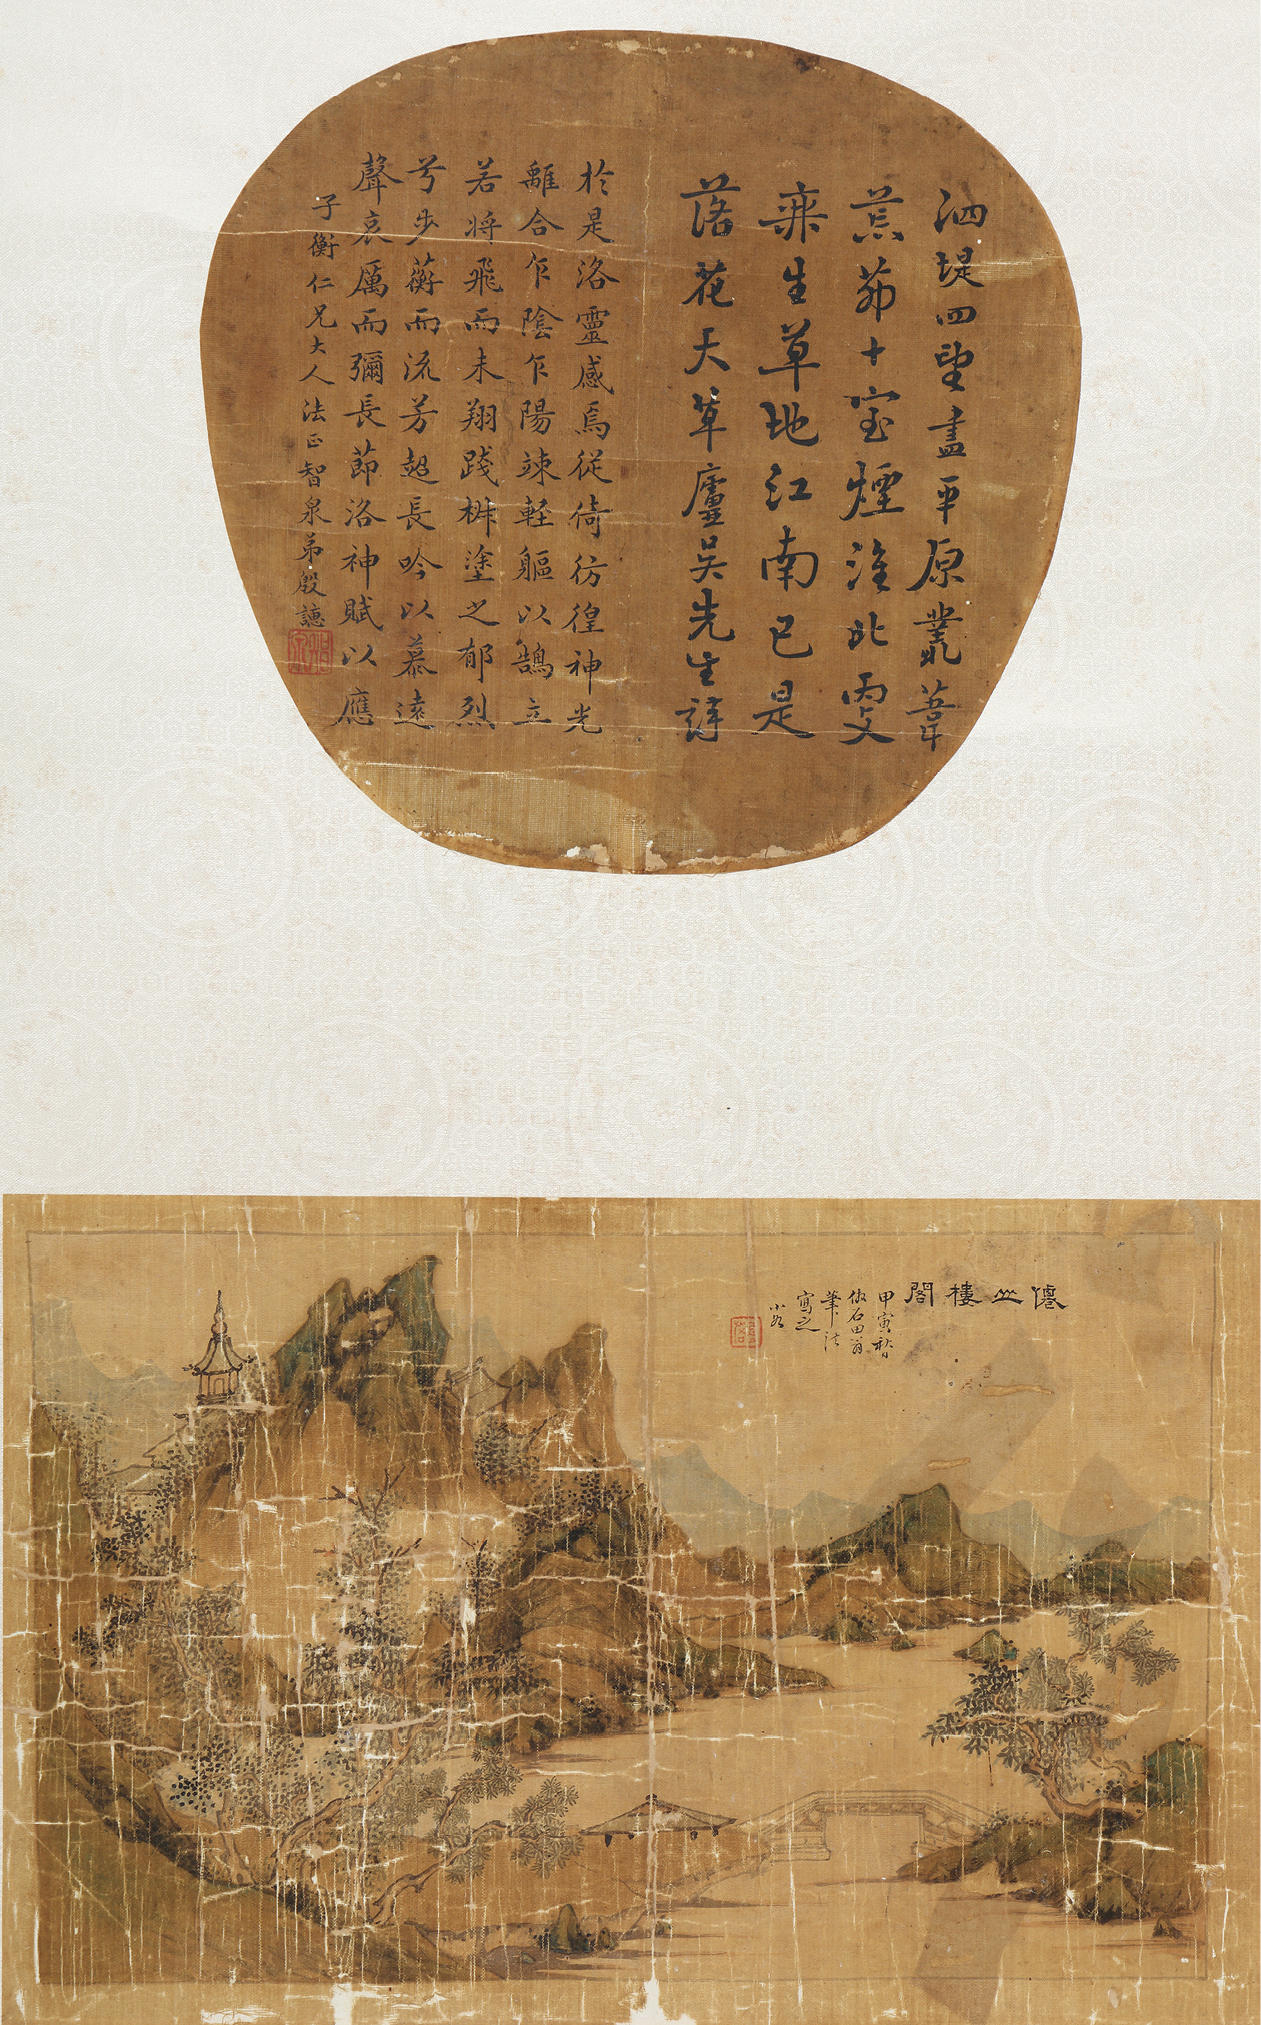 泗堤四望盡平原叢葦
荒茆十室煙淮北㪅
橆生草地江南已是
落花天草廬吳先生詩
於是洛靈感焉徙倚彷徨神光
離合乍陰乍陽竦軽軀以鵠立
若將飛而未翔踐椒塗之郁烈
兮步蘅而流芳超長吟以慕遠
聲哀厲而彌長節洛神賦以應
子衡仁兄大人法正智泉弟殷譓
僊山樓閣
甲寅秋
倣石田翁
筆法
寫之